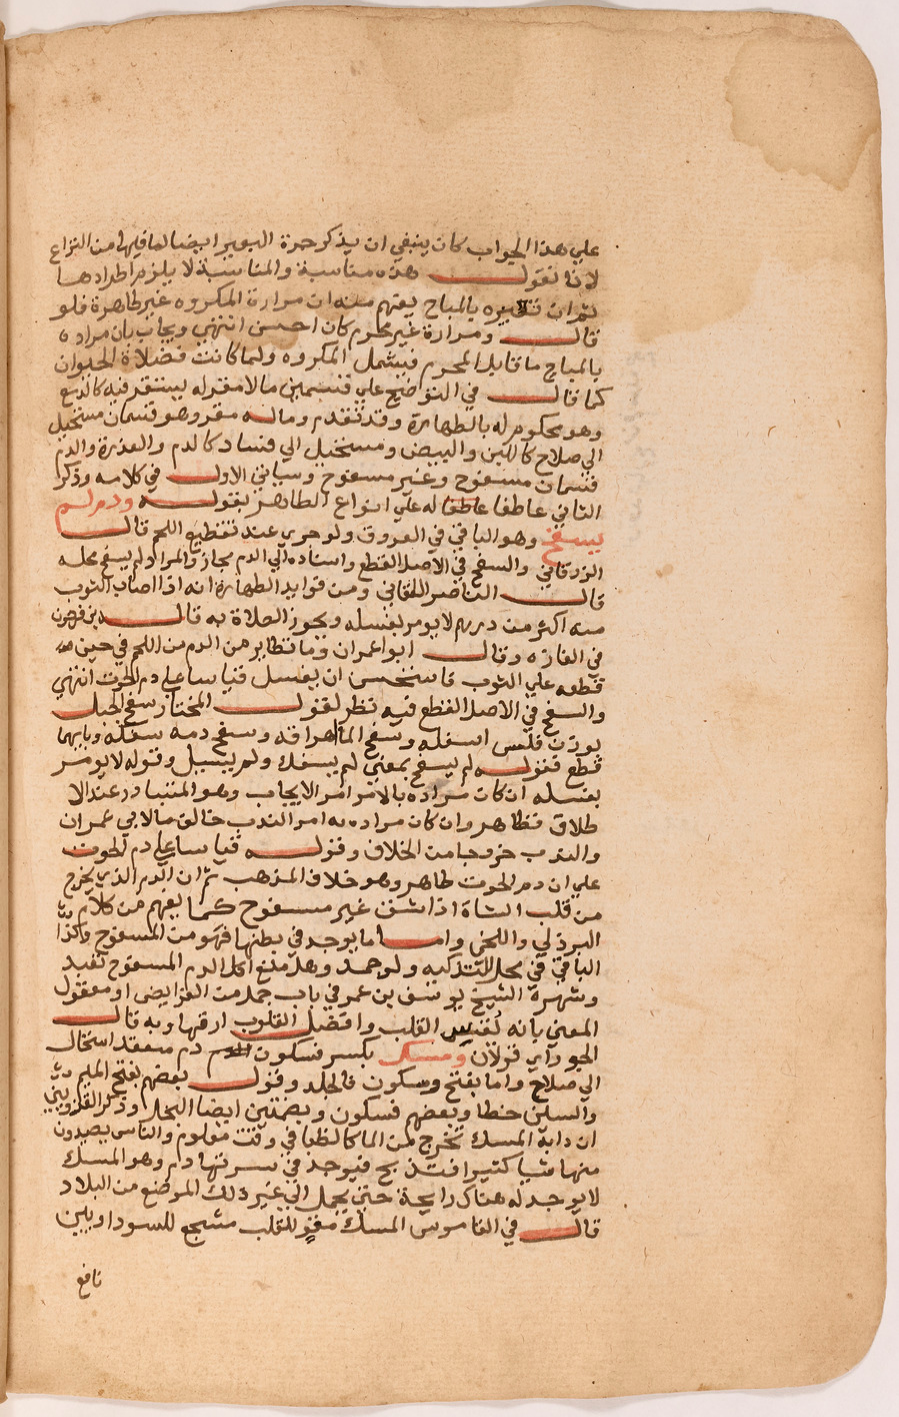 علي هذا الجواب كان ينبغي ان يذكر جرة البعير ايضا لما فيها من النزاع
لانا نقول هذه مناسبة والمناسبة لا يلزم اطرادها
ثم ان تفسيره بالمباح يفهم منه ان مرارة المكروه غير طاهرة فلو
قال ومرارة غير محرم كان احسن انتهي ويجاب بان مراده
بالمباح ما قابل المحرم فيشمل المكروه ولما كانت فضلاة الحيوان
كما قال في التوضيح علي قسمين مالا مقر له يستقر فيه كالدمع
وهو محكوم له بالطهارة وقد تقدم وماله مقر وهو قسمان مستحيل
الي صلاح كاللبن والبيض ومستحيل الي فساد كالدم والعذرة والدم
قسمان مسفوح وغير مسفوح وسياتي الاول في كلامه وذكر
الثاني عاطفا عاطفا له علي انواع الطاهر بقوله ودم لم
يسفح وهو الباقي في العروق ولو جري عند تقطيع اللحم قال
الزرقاني والسفح في الاصل القطع واسناده الي الدم مجاز والمراد لم يسفح محله
قال الناصر اللقاني ومن فوايد الطهارة انه اذا اصاب الثوب
منه اكثر من درهم لا يومر بغسله ويجوز الصلاة به قاله بن فرحون
في الغازه وقال ابو اعمران وما تطاير من الدم من اللحم في حين
قطعه علي الثوب فاستحسن ان يغسل قياسا علي دم الحوت انتهي
والسفح في الاصل القطع فيه نظر لقول المختار سفح الجبل
بوزن فلس اسفله وسفح الما هراقه وسفح دمه سفكه وبابهما
قطع فقوله لم يسفح بمعني لم يسفك ولم يسيل وقوله لا يومر
بغسله ان كان مراده بالامر امر الايجاب وهو المتبادر عند الا
طلاق فظاهر وان كان مراده به امر الندب خالف مالابي عمران
والندب خروجا من الخلاف وقوله قياسا علي دم الحوت
علي ان دم الحوت طاهر وهو خلاف المذهب ثم ان الدم الذي يخرج
من قلب الشاة اذا شق غير مسفوح كما يفهم من كلام
البرذلي واللخمي واما ما يوجد في بطنها فهو من المسفوح وكذا
الباقي في محل التذكيه ولو جمد وهل منع اكل الدم المسفوح تعبد
وشهرة الشيخ يوسف بن عمر في باب جمل من الفرايض او معقول
المعني بانه يقسي القلب وافضل القلوب ارقها وبه قال
الجوراي قولان ومسك بكسر فسكون دم منعقد استحال
الي صلاح واما بفتح وسكون فالجلد وقول بعضهم بفتح الميم
والسلين خطا وبعضهم فسكون وبضمتين ايضا البخل وذكر القزويني
ان دابة المسك تخرج من الما كالظبا في وقت معلوم والناس يصيدون
منها شيا كثيرا فتذبح فيوجد في سرتها دم وهو المسك
لا يوجد له هناك رايحة حتي يحمل الي غير ذلك الموضع من البلاد
قال في القاموس المسك مقو للقلب مشجع للسوداويين
نافع